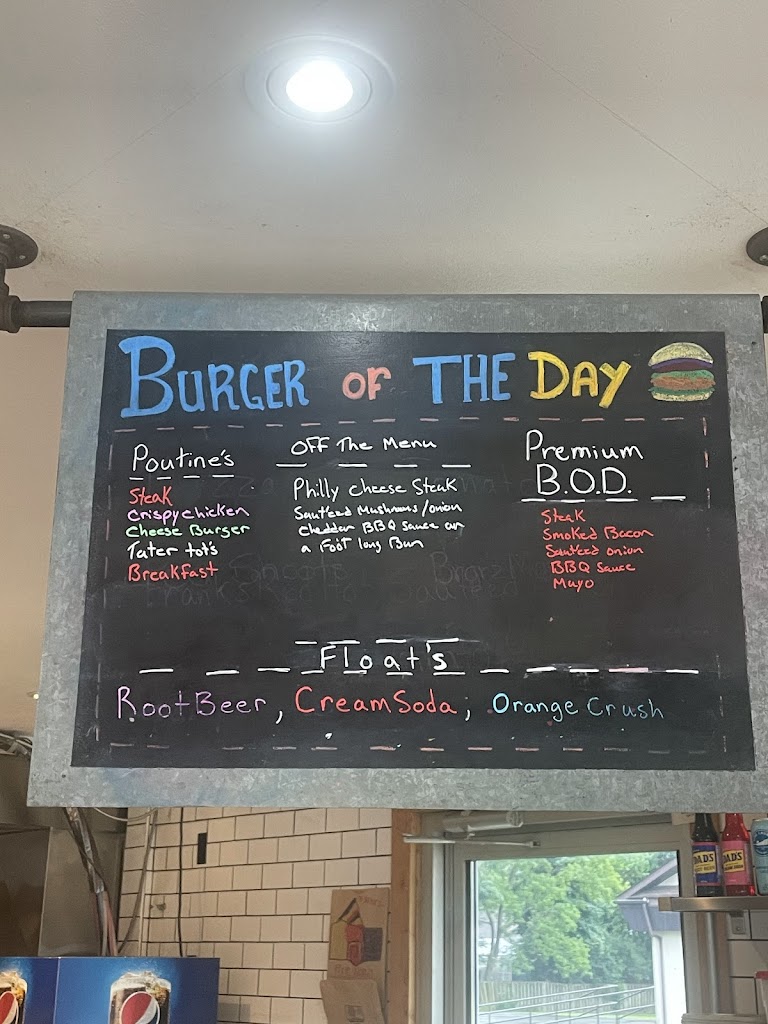 BURGER OF THE DAY
Poutine's
Steak
Crispy chicken
Cheese Burger
Tater tot's
Breakfast
OFF The Menu
Philly cheese Steak
Sauteed Mushrooms/onion
cheddar BBQ Sauce on
a Foot long Bun
Premium
B.O.D.
Steak
Smoked Bacon
Sauteed onion
BBQ Sauce
Mayo
Float's
RootBeer, CreamSoda, Orange Crush
DAD'S
DAD'S